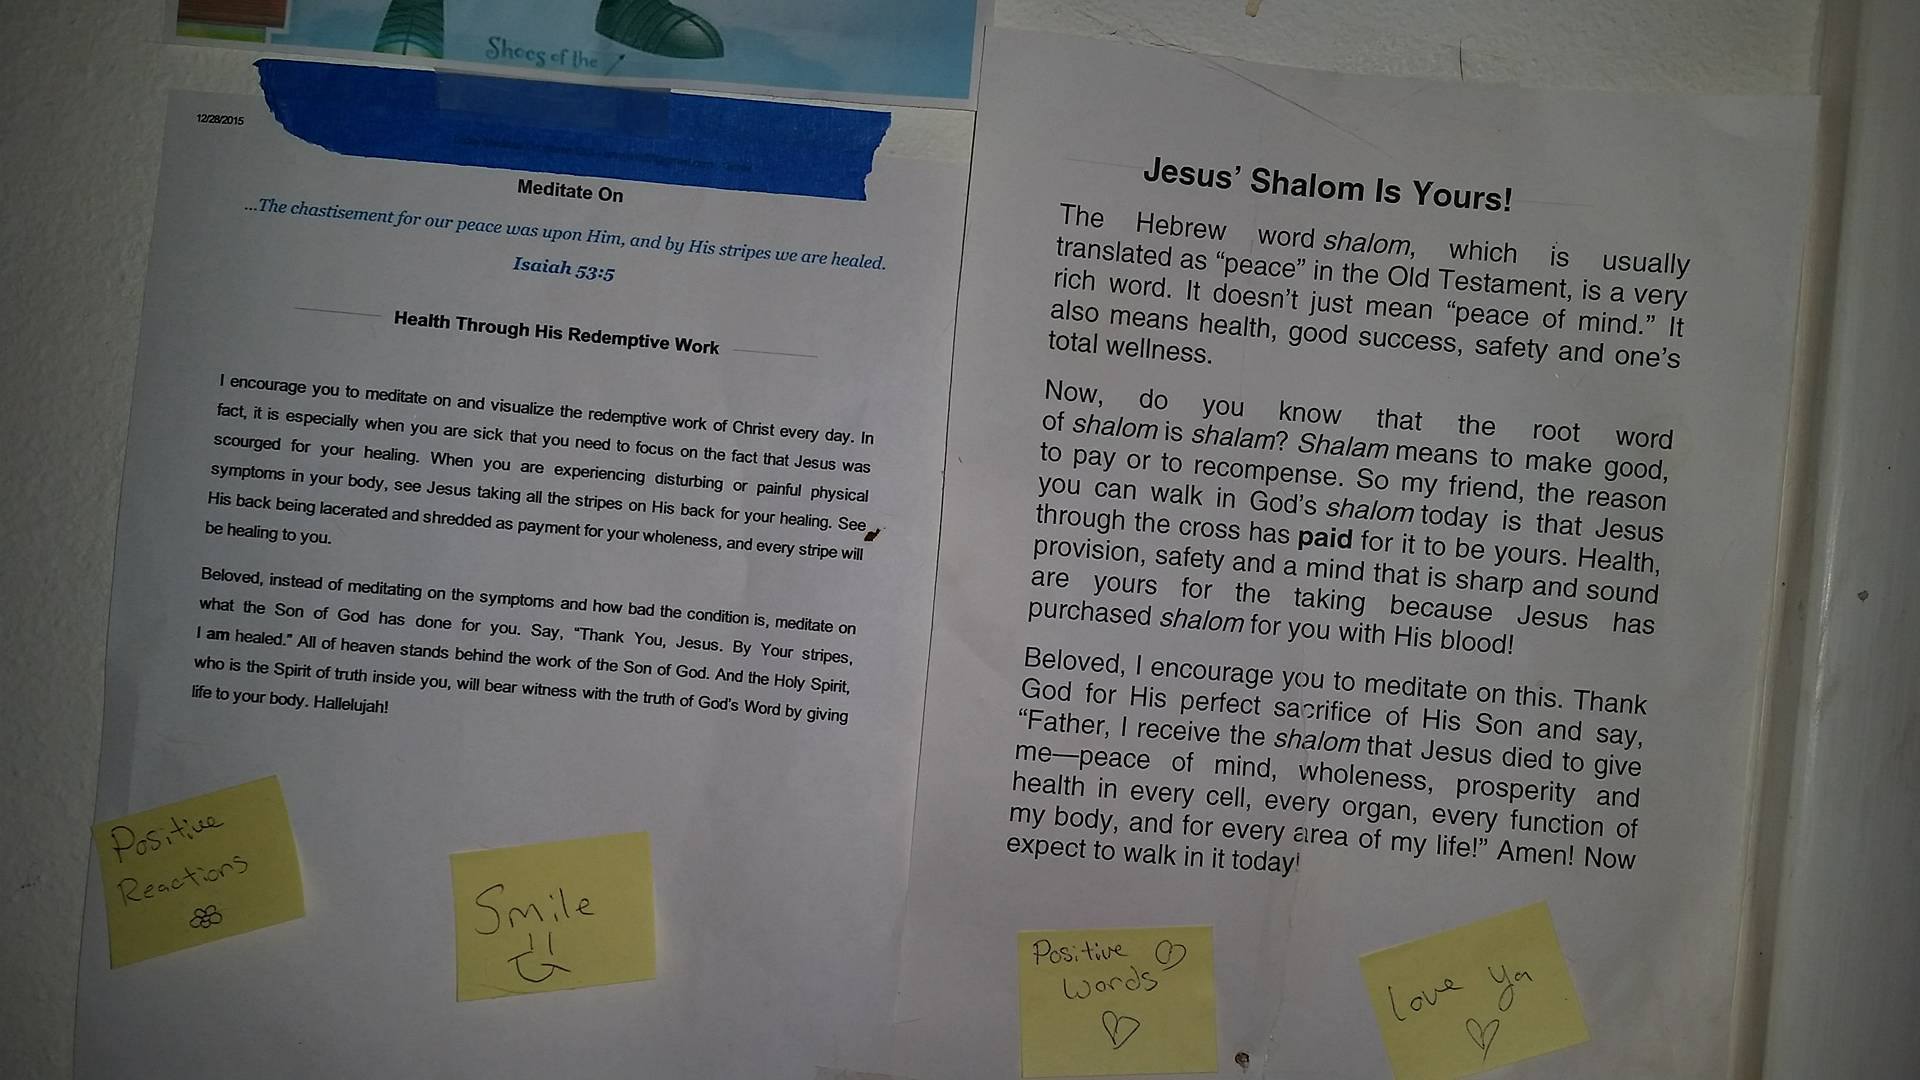 Shoes of the
12/28/2015
Meditate On
...The chastisement for our peace was upon Him, and by His stripes we are healed.
Isaiah 53:5
Health Through His Redemptive Work
I encourage you to meditate on and visualize the redemptive work of Christ every day. In
fact, it is especially when you are sick that you need to focus on the fact that Jesus was
scourged for your healing. When you are experiencing disturbing or painful physical
symptoms in your body, see Jesus taking all the stripes on His back for your healing. See
His back being lacerated and shredded as payment for your wholeness, and every stripe will
be healing to you.
Beloved, instead of meditating on the symptoms and how bad the condition is, meditate on
what the Son of God has done for you. Say, “Thank You, Jesus. By Your stripes,
I am healed.” All of heaven stands behind the work of the Son of God. And the Holy Spirit,
who is the Spirit of truth inside you, will bear witness with the truth of God’s Word by giving
life to your body. Hallelujah!
Positive
Reactions
Smile
Jesus’ Shalom Is Yours!
The Hebrew word shalom, which is usually
translated as “peace” in the Old Testament, is a very
rich word. It doesn’t just mean “peace of mind.” It
also means health, good success, safety and one’s
total wellness.
Now, do you know that the root word
of shalom is shalam? Shalam means to make good,
to pay or to recompense. So my friend, the reason
you can walk in God’s shalom today is that Jesus
through the cross has paid for it to be yours. Health,
provision, safety and a mind that is sharp and sound
are yours for the taking because Jesus has
purchased shalom for you with His blood!
Beloved, I encourage you to meditate on this. Thank
God for His perfect sacrifice of His Son and say,
“Father, I receive the shalom that Jesus died to give
me—peace of mind, wholeness, prosperity and
health in every cell, every organ, every function of
my body, and for every area of my life!” Amen! Now
expect to walk in it today!
Positive
Words
Love Ya